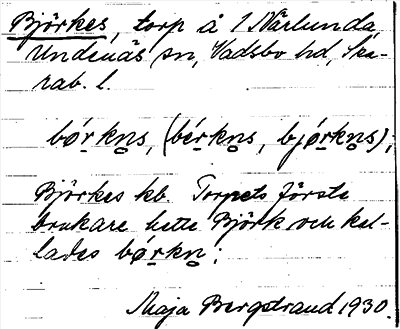 Björkes, torp å 1 Närlunda,
Undenäs sn, Vadsbo hd, Ska-
rab. l.
bórkns, (bérkns, bjórkns);
Björkes kb. Torpets första
brukare hette Björk och kal-
lades bórkn;
Maja Bergstrand 1930.